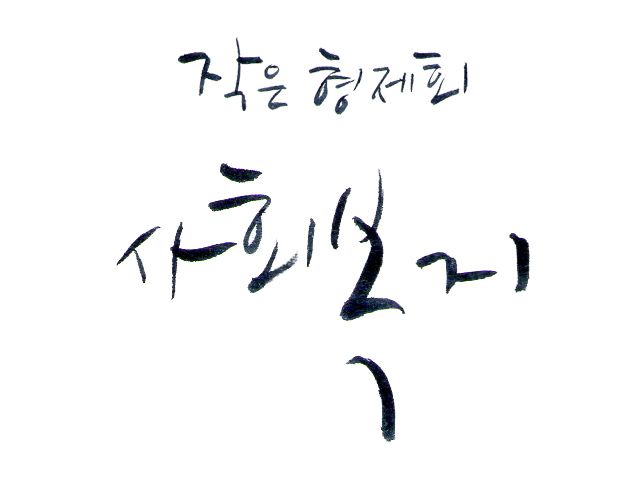 작은 형제회
사회복지